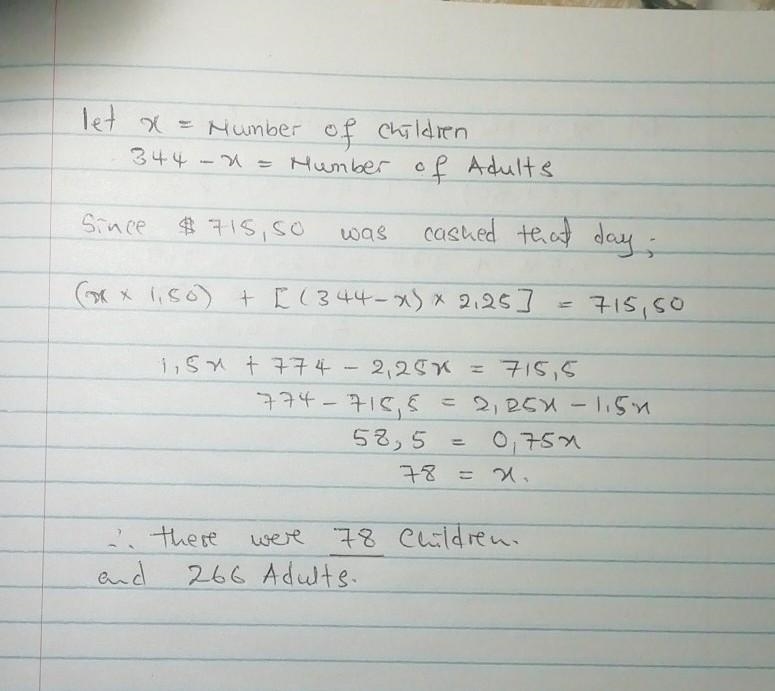 let x = Number of children
344 - x = Number of Adults
Since $ 715,50 was cashed that day;
(x × 1,50) + [(344-x) × 2,25] = 715,50
1,5x + 774 - 2,25x = 715,5
774 - 715,5 = 2,25x - 1,5x
58,5 = 0,75x
78 = x.
∴ there were 78 Children.
and 266 Adults.